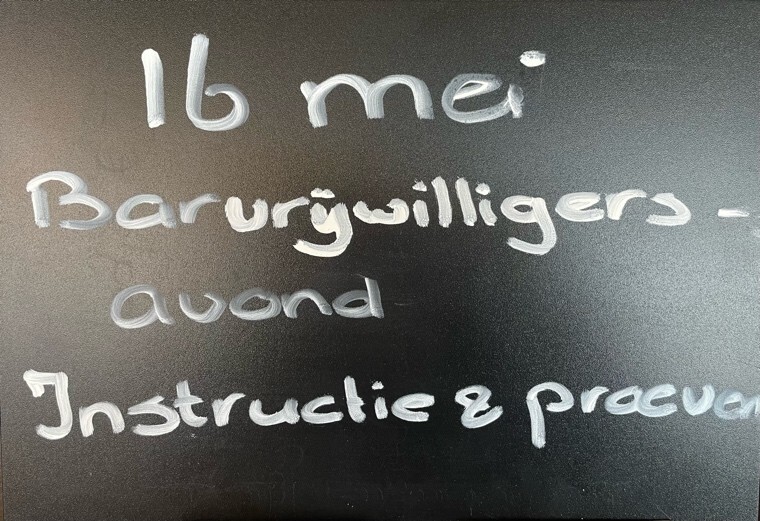 16 mei
Barvrijwilligers-
avond
Instructie & proeven